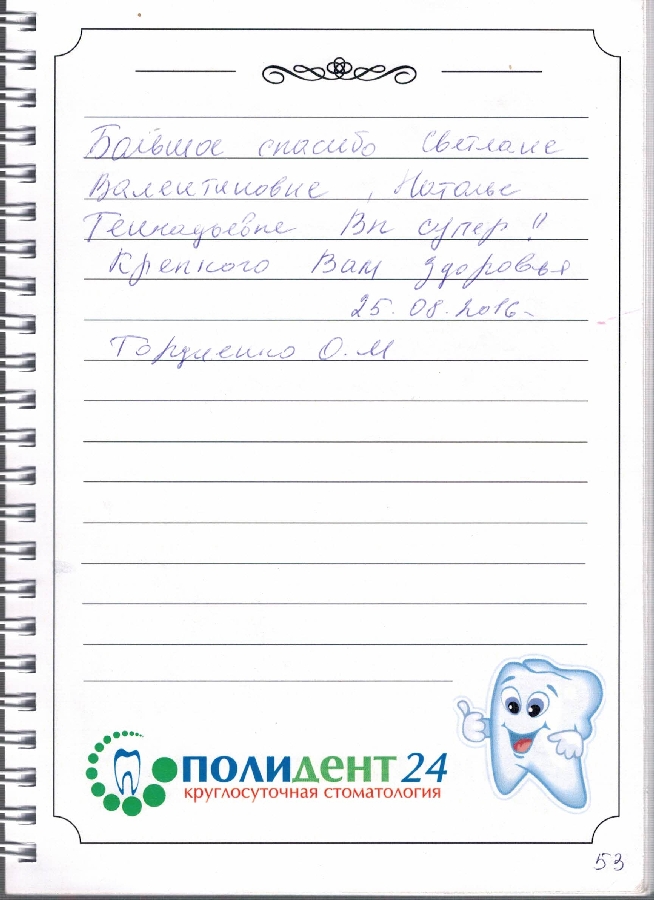 Большое спасибо Светлане
Валентиновне, Наталье
Геннадьевне Вы супер!!
Крепкого Вам здоровья
25.08.2016
Гордиенко О.М
ПОЛИДЕНТ 24
круглосуточная стоматология
53